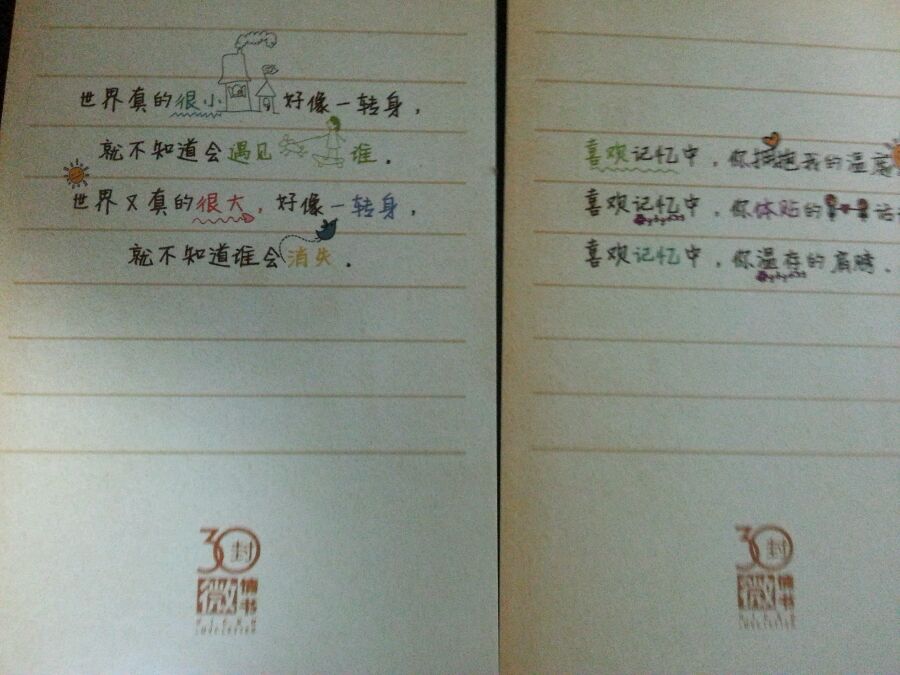 世界真的很小 好像一转身，
就不知道会遇见 谁．
世界又真的很大，好像一转身，
就不知道谁会消失．
30封
微情书
喜欢记忆中，你拥抱我的温度
喜欢记忆中，你体贴的 话
喜欢记忆中，你温存的肩膀．
30封
微情书